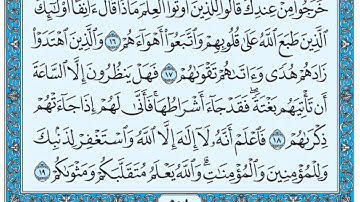 خَرَجُوا۟ مِنْ عِندِكَ قَالُوا۟ لِلَّذِينَ أُوتُوا۟ ٱلْعِلْمَ مَاذَا قَالَ ءَانِفًا ۚ أُو۟لَٰٓئِكَ
ٱلَّذِينَ طَبَعَ ٱللَّهُ عَلَىٰ قُلُوبِهِمْ وَٱتَّبَعُوٓا۟ أَهْوَآءَهُمْ ١٦ وَٱلَّذِينَ ٱهْتَدَوْا۟
زَادَهُمْ هُدًى وَءَاتَىٰهُمْ تَقْوَىٰهُمْ ١٧ فَهَلْ يَنظُرُونَ إِلَّا ٱلسَّاعَةَ
أَن تَأْتِيَهُم بَغْتَةً ۖ فَقَدْ جَآءَ أَشْرَاطُهَا ۚ فَأَنَّىٰ لَهُمْ إِذَا جَآءَتْهُمْ
ذِكْرَىٰهُمْ ١٨ فَٱعْلَمْ أَنَّهُۥ لَآ إِلَٰهَ إِلَّا ٱللَّهُ وَٱسْتَغْفِرْ لِذَنۢبِكَ
وَلِلْمُؤْمِنِينَ وَٱلْمُؤْمِنَٰتِ ۗ وَٱللَّهُ يَعْلَمُ مُتَقَلَّبَكُمْ وَمَثْوَىٰكُمْ ١٩
٥٠٨